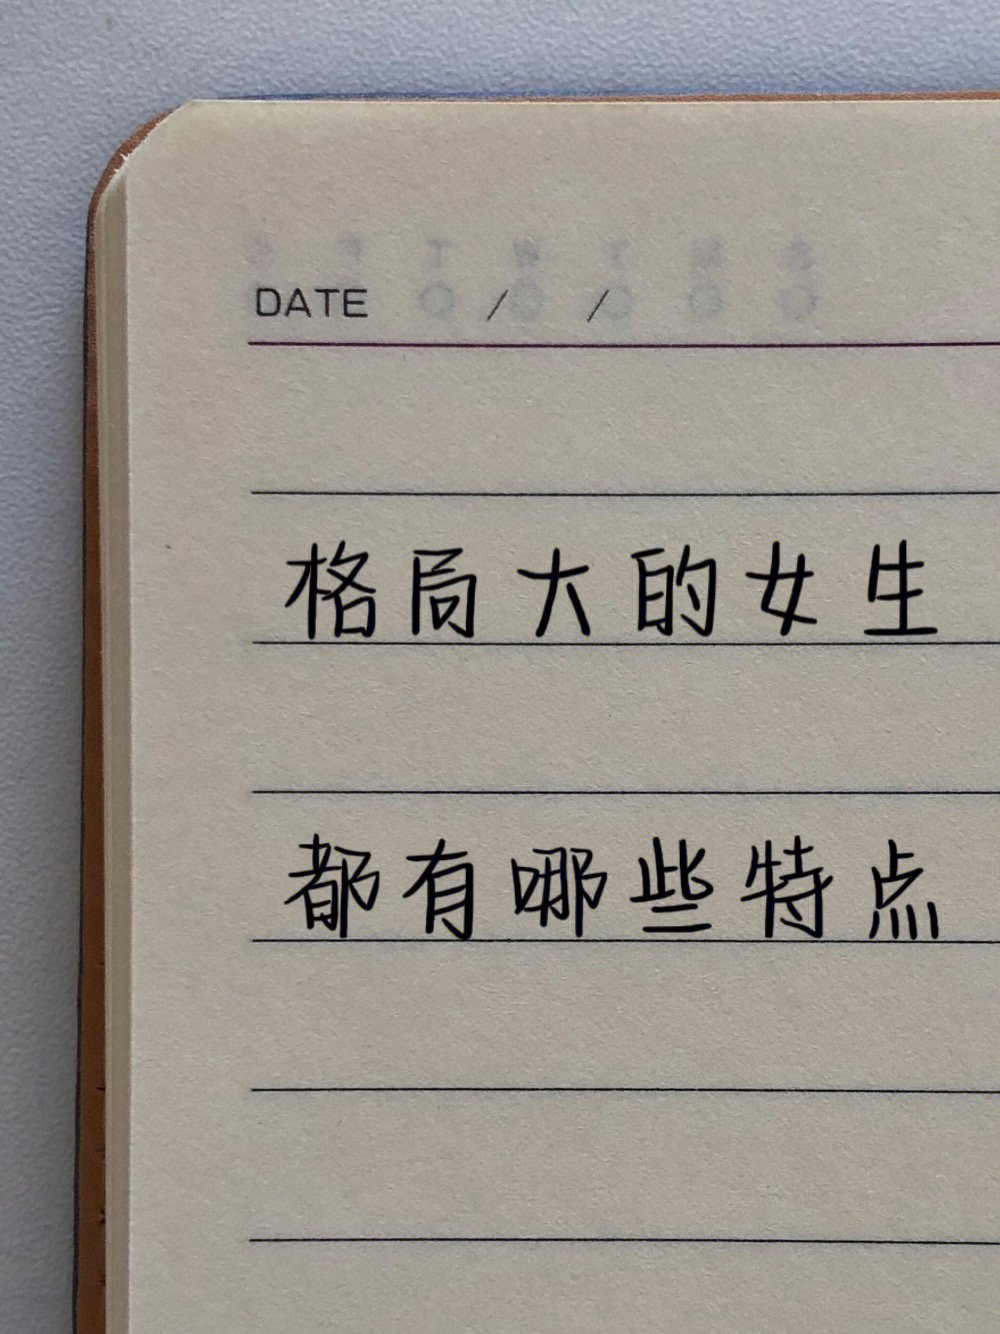 DATE / /
格局大的女生
都有哪些特点